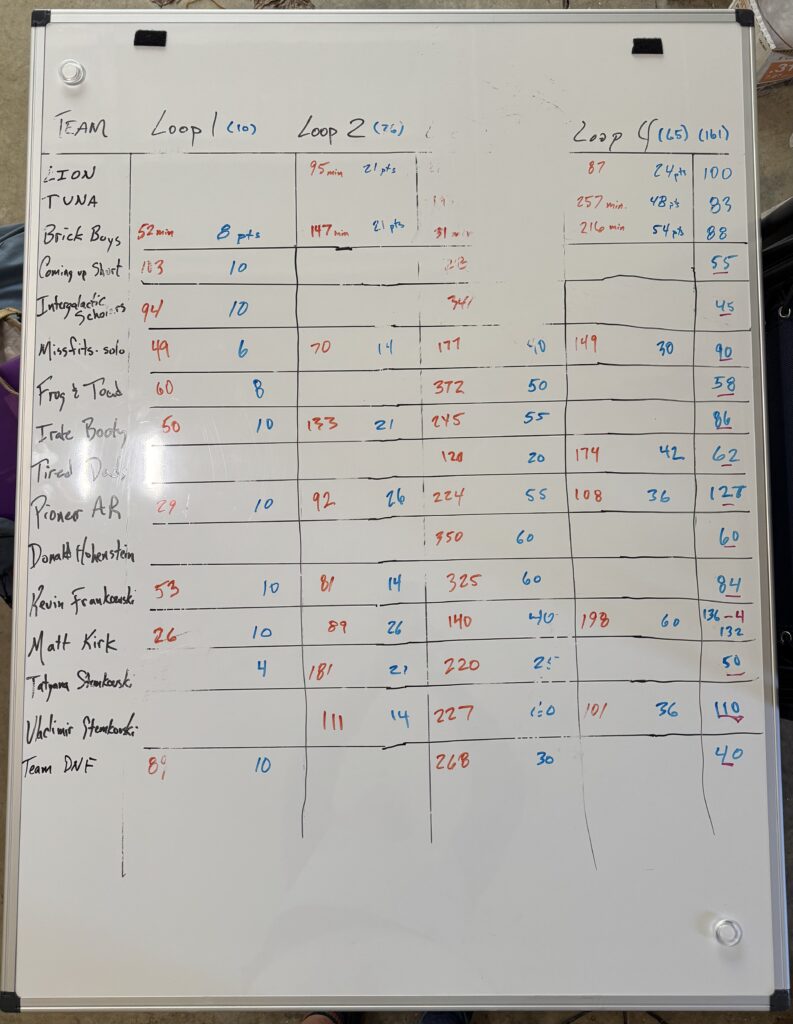 TEAM Loop 1 (10) Loop 2 (26) Loop 4 (65) (161)
LION 95 min 21 pts 87 24 pts 100
TUNA 257 min. 48 pt 83
Brick Boys 52 min 8 pts 147 min 21 pts 31 min 216 min 54 pts 88
Coming up Short 103 10 55
Intergalactic 94 10 45
Missfits-solo 49 6 70 14 177 40 149 30 90
Frog & Toad 60 8 372 50 58
Irate Booty 50 10 133 21 245 55 86
Tired 120 20 174 42 62
Pioneer AR 29 10 92 26 224 55 108 36 127
Donald Hohenstein 350 60 60
Kevin Frankowski 53 10 81 14 325 60 84
Matt Kirk 26 10 89 26 140 40 198 60 136-4
132
Tatyana Stemkovski 4 181 21 220 25 50
Vladimir Stemkovski 111 14 227 60 101 36 110
Team DNF 10 268 30 40